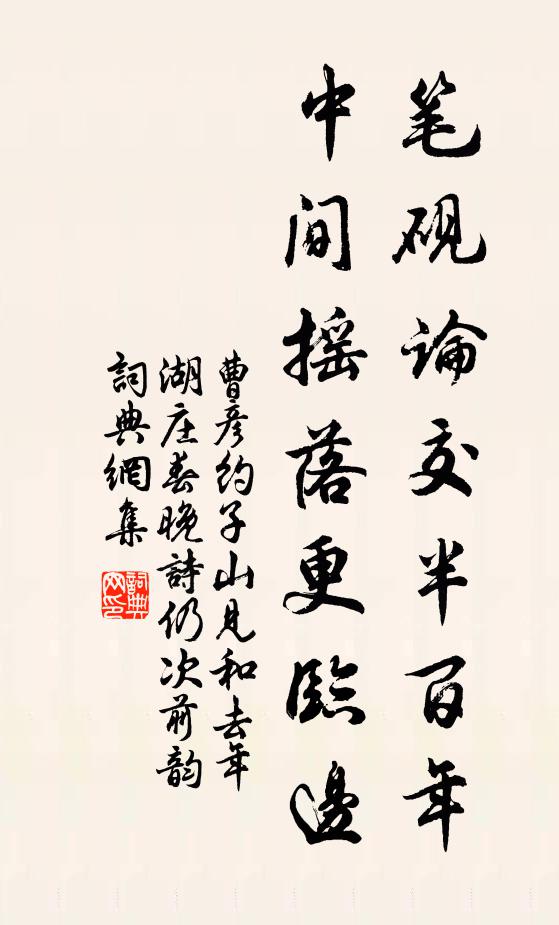 笔砚論交半百年
中间摇落更臨邊
曹彦约子山見和去年
湖庄春晚詩仍次前韵
詞典網集
詞典网印